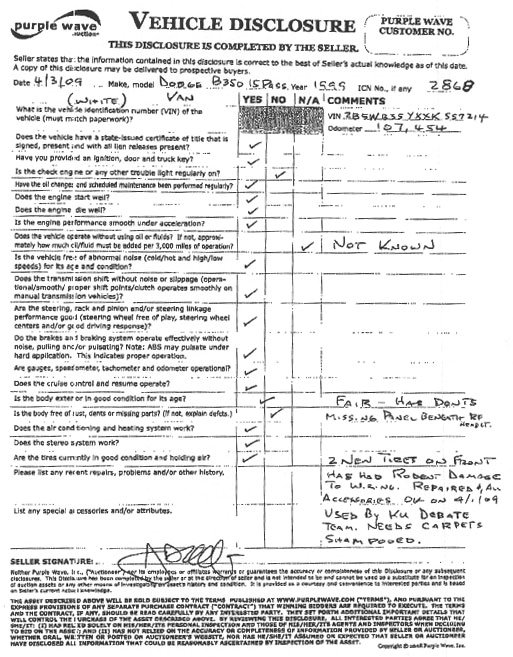 purple wave
auction
VEHICLE DISCLOSURE
PURPLE WAVE
CUSTOMER NO.
THIS DISCLOSURE IS COMPLETED BY THE SELLER.
Seller states that the information contained in this disclosure is correct to the best of Seller's actual knowledge as of this date.
A copy of this disclosure may be delivered to prospective buyers.
Date 4/3/09 Make, model DODGE B350 15 PASS. Year 1999 ICN No., if any 2868
(WHITE) VAN
YES NO N/A COMMENTS
What is the vehicle identification number (VIN) of the
vehicle (must match paperwork)?
VIN
Odometer 107,454
Does the vehicle have a state-issued certificate of title that is
signed, present and with all lien releases present?
Have you provided an ignition, door and truck key?
Is the check engine or any other trouble light regularly on?
Have the oil changes and scheduled maintenance been performed regularly?
Does the engine start well?
Does the engine idle well?
Is the engine performance smooth under acceleration?
Does the vehicle operate without using oil or fluids? If not, approxi-
mately how much oil/fluid must be added per 3,000 miles of operation?
NOT KNOWN
Is the vehicle free of abnormal noise (cold/hot and high/low
speeds) for its age and condition?
Does the transmission shift without noise or slippage (opera-
tional/smooth/ proper shift points/clutch operates smoothly on
manual transmission vehicles)?
Are the steering, rack and pinion and/or steering linkage
performance good (steering wheel free of play, steering wheel
centers and/or good driving response)?
Do the brakes and braking system operate effectively without
noise, pulling and/or pulsating? Note: ABS may pulsate under
hard application. This indicates proper operation.
Are gauges, speedometer, tachometer and odometer operational?
Does the cruise control and resume operate?
Is the body exterior in good condition for its age?
FAIR - HAS DENTS
Is the body free of rust, dents or missing parts? (If not, explain defects.)
MISSING PANEL BENEATH RF
Does the air conditioning and heating system work?
Does the stereo system work?
Are the tires currently in good condition and holding air?
2 NEW TIRES ON FRONT
Please list any recent repairs, problems and/or other history.
HAS HAD RODENT DAMAGE
TO WIRING. REPAIRED & ALL
ACCESSORIES OK ON 4/1/09
List any special accessories and/or attributes.
USED BY KU DEBATE
TEAM. NEEDS CARPETS
SHAMPOOED.
SELLER SIGNATURE:
Neither Purple Wave, Inc., ("Auctioneer") nor its employees or affiliates warrants or guarantees the accuracy or completeness of this Disclosure or any subsequent
disclosures. This Disclosure has been completed by the seller or at the direction of seller and is not intended to be and cannot be used as a substitute for an inspection
of auction assets or any other means of investigating an asset's history and condition. It is provided as a courtesy and convenience to interested parties and is based
on Seller's current actual knowledge.
THE ASSET DESCRIBED ABOVE WILL BE SOLD SUBJECT TO THE TERMS PUBLISHED AT WWW.PURPLEWAVE.COM ("TERMS"), AND PURSUANT TO THE
EXPRESS PROVISIONS OF ANY SEPARATE PURCHASE CONTRACT ("CONTRACT") THAT WINNING BIDDERS ARE REQUIRED TO EXECUTE. THE TERMS
AND THE CONTRACT, IF ANY, SHOULD BE READ CAREFULLY BY ANY INTERESTED PARTY. THEY SET FORTH ADDITIONAL IMPORTANT DETAILS THAT
WILL CONTROL THE PURCHASE OF THE ASSET DESCRIBED ABOVE. BY REVIEWING THIS DISCLOSURE, ALL INTERESTED PARTIES AGREE THAT HE/
SHE/IT: (I) HAS RELIED SOLELY ON HIS/HER/ITS PERSONAL INSPECTION AND THOSE OF HIS/HER/ITS AGENTS AND INSPECTORS WHEN DECIDING
TO BID ON THE ASSET; AND (II) MAY NOT RELIED ON THE ACCURACY OR COMPLETENESS OF INFORMATION PROVIDED BY SELLER OR AUCTIONEER,
WHETHER ORAL, WRITTEN OR POSTED ON AUCTIONEER'S WEBSITE, NOR HAS HE/SHE/IT ASSUMED OR EXPECTED THAT SELLER OR AUCTIONEER
HAVE DISCLOSED ALL INFORMATION THAT COULD BE REASONABLY ASCERTAINED BY INSPECTION OF THE ASSET.
Copyright © 2008 Purple Wave, Inc.